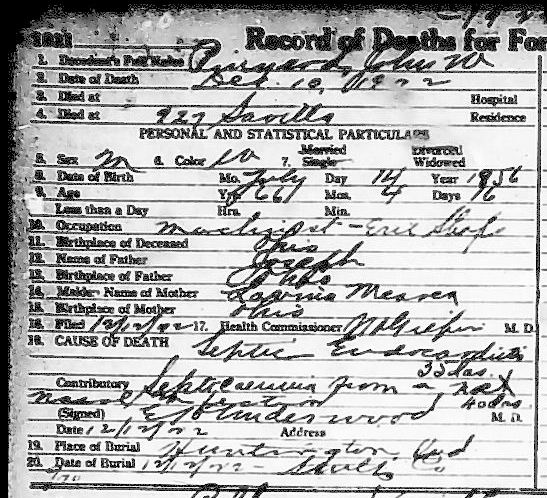 1921 Record of Deaths for For
1. Decedent's Full Name John W
2. Date of Death Dec. 10, 1922
3. Died at Hospital
4. Died at 927 Savilla Residence
PERSONAL AND STATISTICAL PARTICULARS
5. Sex M 6. Color W 7. Married Single Divorced Widowed
8. Date of Birth Mo. July Day 14 Year 1856
9. Age Yr. 66 Mos. 4 Days
Less than a Day Hrs. Min.
10. Occupation Machinist - Erie Shops
11. Birthplace of Deceased Ohio
12. Name of Father Joseph
13. Birthplace of Father Ohio
14. Maiden Name of Mother Lavina
15. Birthplace of Mother Ohio
16. Filed 12/12/22 17. Health Commissioner M. D.
18. CAUSE OF DEATH Septic Endocarditis
35 das
Contributory Septicaemia from a
Nasal Infection 40 das
(Signed) Underwood M. D.
Date 12/12/22 Address
19. Place of Burial Huntington, Ind
20. Date of Burial 12/12/22